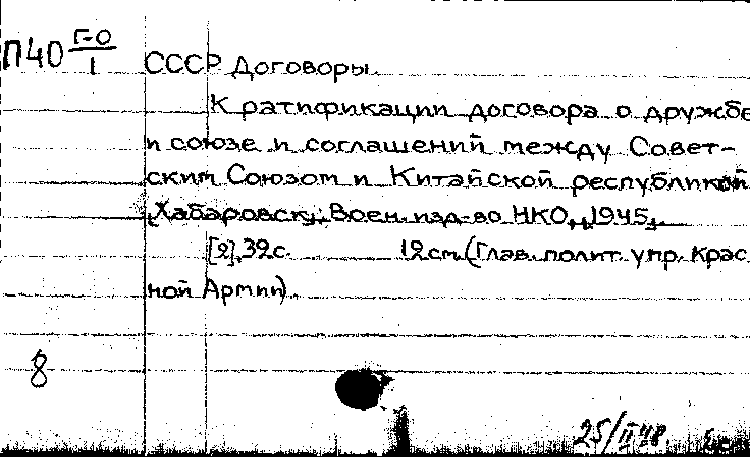 П40 Г-0/1 СССР Договоры.
К ратификации договора о дружбе
и союзе и соглашений между Совет-
ским Союзом и Китайской республикой
[Хабаровск], Воен. изд-во НКО, 1945.
[2], 32с. 12см. (Глав. полит. упр. Крас
ной Армии).
8
25/II 48.